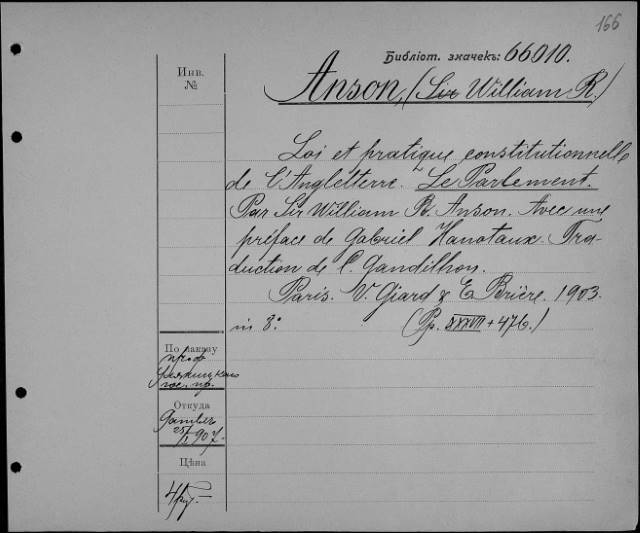 166
Библіот. значекъ: 66010.
Инв.
№
Anson, (Sir William R.)
Loi et pratique constitutionnelle
de l'Angleterre. Le Parlement.
Par Sir William R. Anson. Avec une
préface de Gabriel Hanotaux. Tra-
duction de C. Gandilhon.
Paris. V. Giard & E. Brière. 1903.
in 8° (Pp. XXXVII + 476.)
По заказу
проф
гос. пр.
Откуда
907.
Цѣна